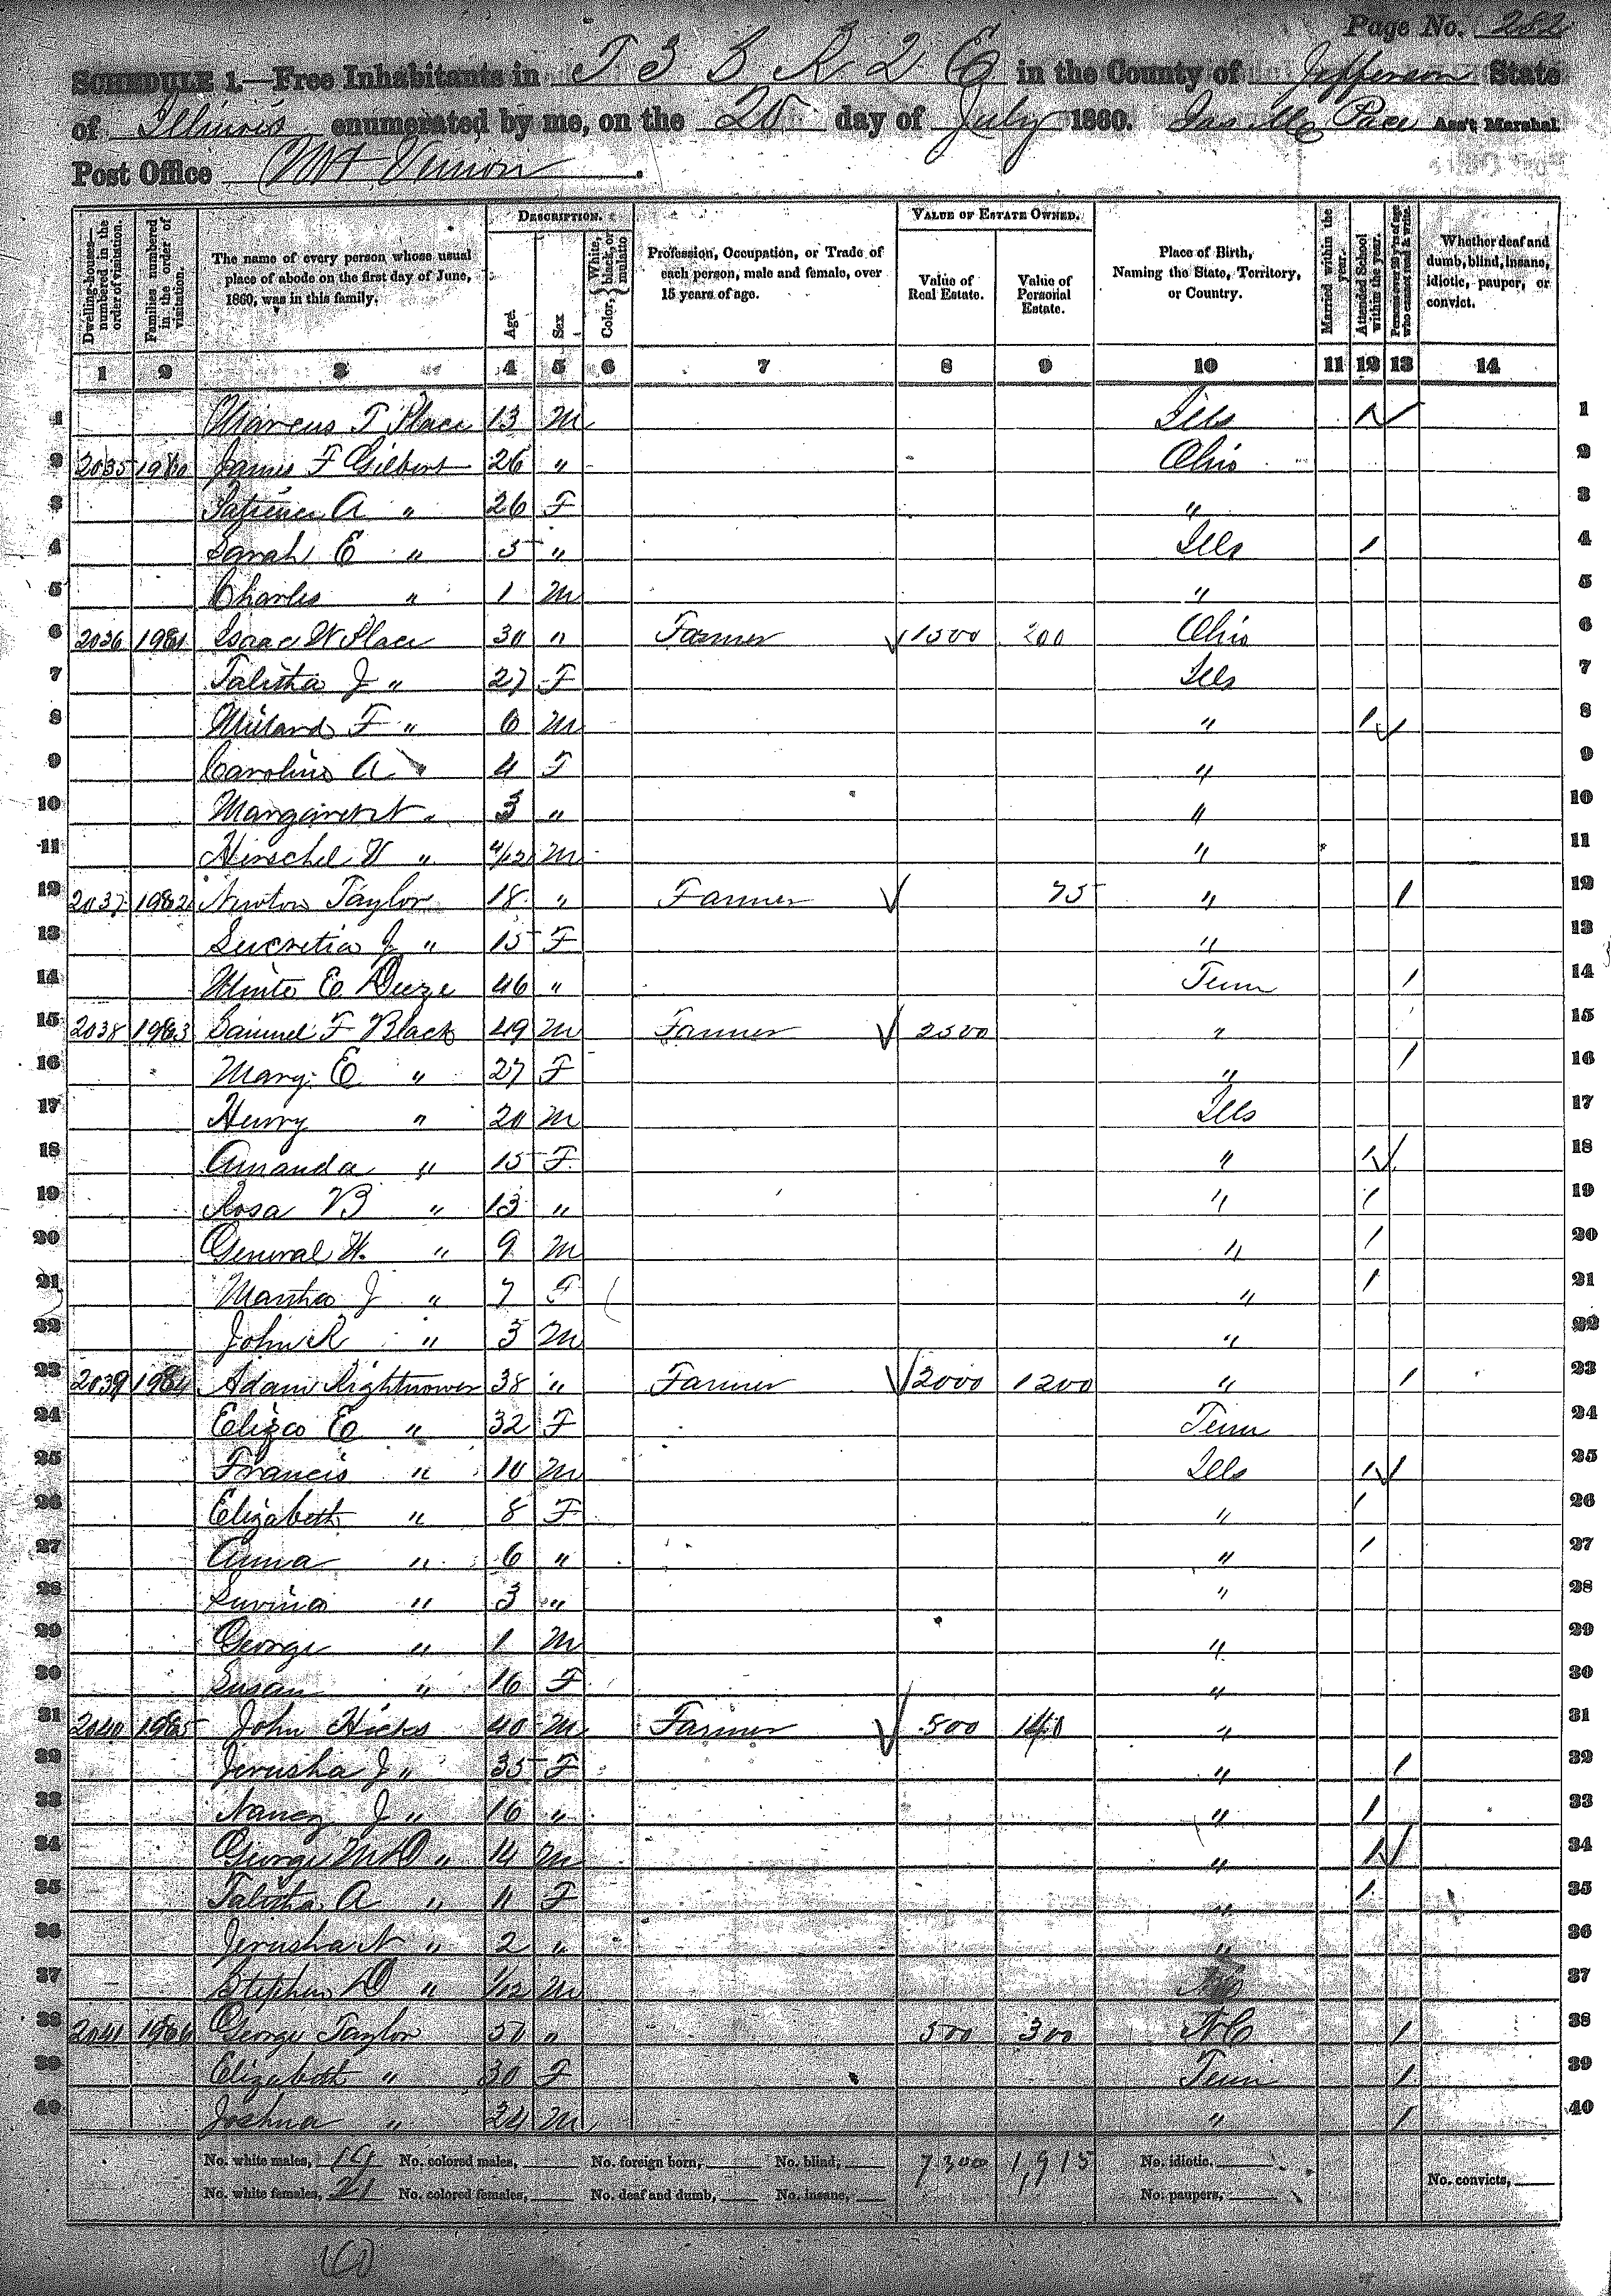 Page No. 282
SCHEDULE 1.—Free Inhabitants in T 3 S R 2 E in the County of Jefferson State
of Illinois enumerated by me, on the 20 day of July 1860. Jas Mc Pace Ass't Marshal.
Post Office Mt Vernon.
Dwelling-houses—numbered in the order of visitation. Families numbered in the order of visitation. The name of every person whose usual place of abode on the first day of June, 1860, was in this family. DESCRIPTION. Age. Sex Color, White, black, or mulatto Profession, Occupation, or Trade of each person, male and female, over 15 years of age. VALUE OF ESTATE OWNED. Value of Real Estate. Value of Personal Estate. Place of Birth, Naming the State, Territory, or Country. Married within the year. Attended School within the year. Persons over 20 y'rs of age who cannot read & write. Whether deaf and dumb, blind, insane, idiotic, pauper, or convict.
1 2 3 4 5 6 7 8 9 10 11 12 13 14
1 Marcus T Place 13 M Ills 1 1
2 2035 1980 James F Gilbert 26 " Ohio 2
3 A " 26 F " 3
4 Sarah E " 5 " Ills 1 4
5 Charles " 1 M " 5
6 2036 1981 Isaac W Place 30 " Farmer 1500 200 Ohio 6
7 Talitha J " 27 F Ills 7
8 Milard F " 6 M " 1 8
9 Caroline A " 4 F " 9
10 Margaret " 3 " " 10
11 Hirschel V " 4/12 M " 11
12 2037 1982 Newton Taylor 18 " Farmer 75 " 1 12
13 Lucretia J " 15 F " 13
14 E 46 " Tenn 1 14
15 2038 1983 Samuel F Black 49 M Farmer 2500 " 15
16 Mary E " 27 F " 1 16
17 Henry " 20 M Ills 17
18 Amanda " 15 F " 1 18
19 Rosa B " 13 " " 1 19
20 General H. " 9 M " 1 20
21 Martha J " 7 F " 1 21
22 John R " 3 M " 22
23 2039 1984 Adam Rightnower 38 " Farmer 2000 1200 " 1 23
24 Eliza E " 32 F Tenn 24
25 Francis " 10 M Ills 1 25
26 Elizabeth " 8 F " 1 26
27 Anna " 6 " " 1 27
28 Luvina " 3 " " 28
29 George " 1 M " 29
30 Susan " 16 F " 30
31 2040 1985 John Hicks 40 M Farmer 500 140 " 31
32 Jerusha J " 35 F " 1 32
33 Nancy J " 16 " " 1 33
34 George McD " 14 M " 1 34
35 Talitha A " 11 F " 1 35
36 Jerusha N " 2 " " 36
37 Stephen D " 1/12 M 37
38 2041 1986 George Taylor 50 " 500 300 NC 1 38
39 Elizabeth " 30 F Tenn 1 39
40 Joshua " 24 M " 1 40
No. white males, 19 No. colored males, No. foreign born, No. blind, 7300 1,915 No. idiotic,
No. white females, 21 No. colored females, No. deaf and dumb, No. insane, No. paupers, No. convicts,